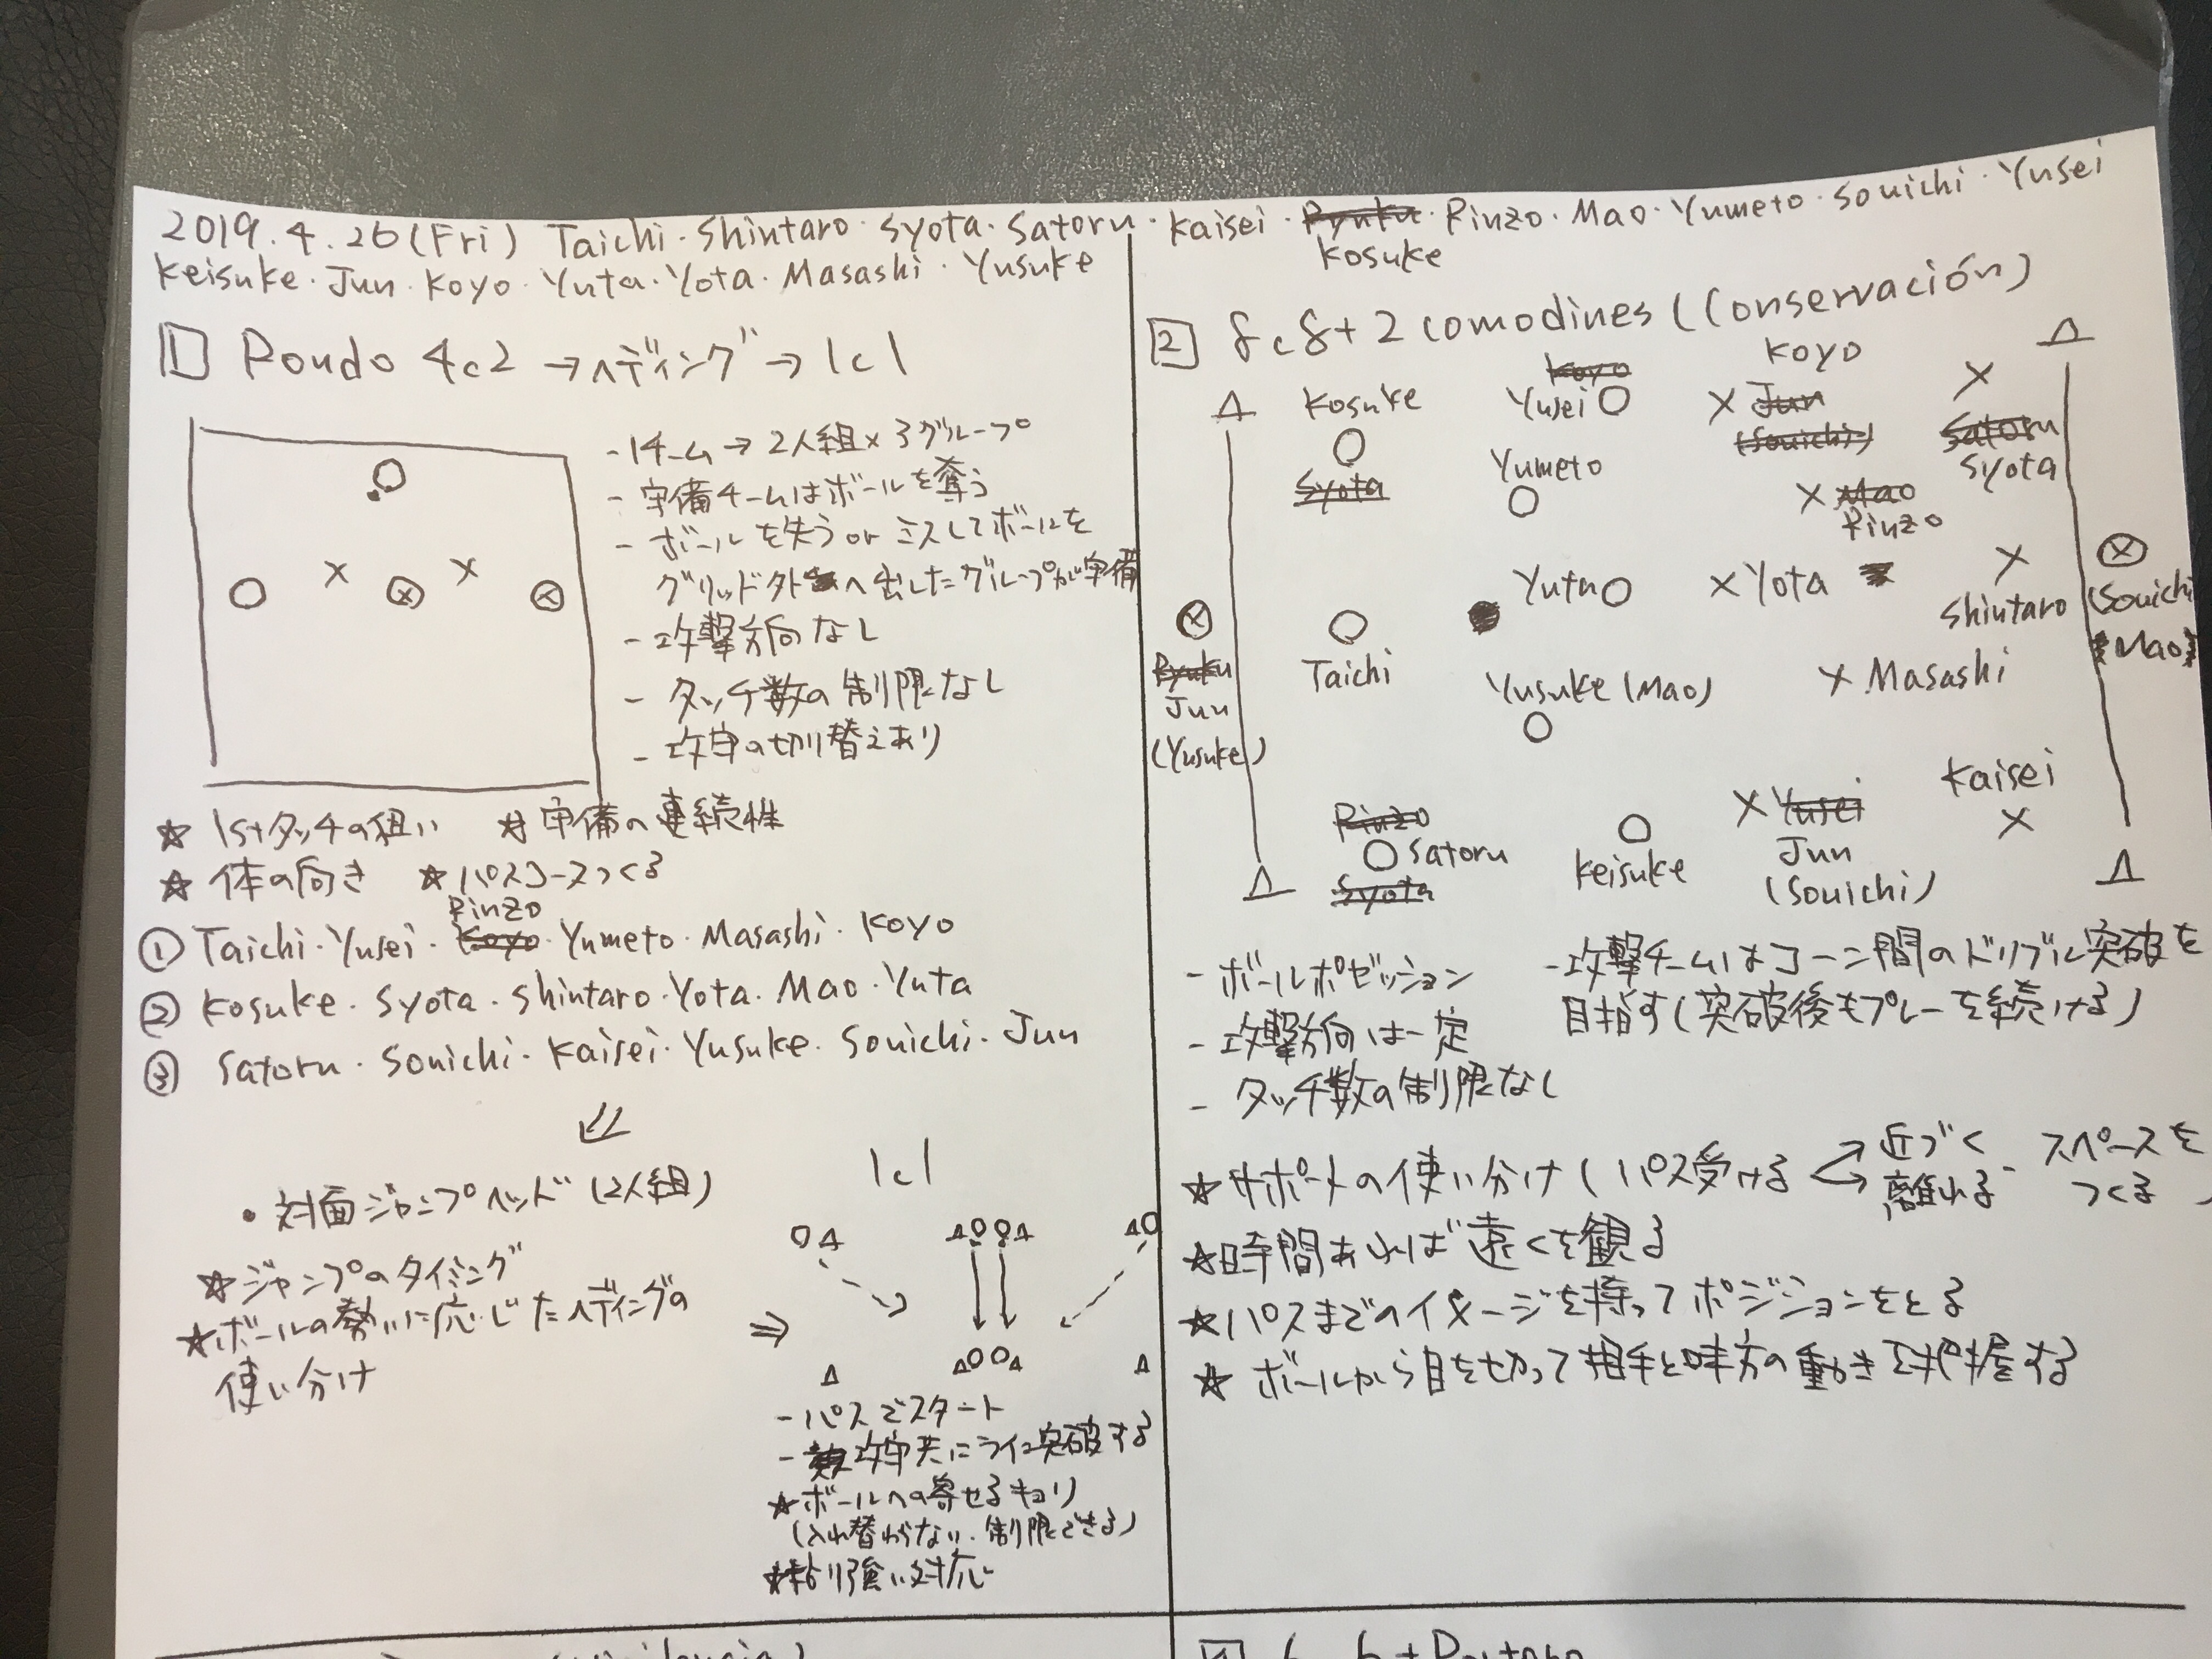 2019.4.26(Fri) Taichi・Shintaro・Syota・Satoru・Kaisei・Ryuku・Rinzo・Mao・Yumeto・Souichi・Yusei
Kosuke
Keisuke・Jun・Koyo・Yuta・Yota・Masashi・Yusuke
1 Rondo 4c2 →ヘディング→ 1c1
- 1チーム→2人組×3グループ
- 守備チームはボールを奪う
- ボールを失う or ミスしてボールを
グリッド外へ出したグループが守備
- 攻撃方向なし
- タッチ数の制限なし
- 攻守の切り替えあり
☆ 1stタッチの狙い ☆ 守備の連続性
☆ 体の向き ☆ パスコースつくる
Rinzo
① Taichi・Yusei・Koyo・Yumeto・Masashi・Koyo
② Kosuke・Syota・Shintaro・Yota・Mao・Yuta
③ Satoru・Souichi・Kaisei・Yusuke・Souichi・Jun
・対面ジャンプヘッド(2人組)
☆ジャンプのタイミング
☆ボールの勢いに応じたヘディングの
使い分け
1c1
- パスでスタート
- 攻守共にライン突破する
☆ボールへの寄せるキョリ
(入れ替わらない・制限できる)
☆粘り強い対応
2 8c8+2 comodines (Conservación)
Koyo
Koyo
Kosuke
Yusei
Jun
(Souichi)
Satoru
Syota
Syota
Yumeto
Mao
Rinzo
Yuta
Yota
Shintaro
(Souichi
Mao)
Ryuku
Jun
(Yusuke)
Taichi
Yusuke (Mao)
Masashi
Kaisei
Rinzo
Satoru
Syota
Keisuke
Yusei
Jun
(Souichi)
- ボールポゼッション
- 攻撃方向は一定
- タッチ数の制限なし
- 攻撃チームはコーン間のドリブル突破を
目指す(突破後もプレーを続ける)
☆サポートの使い分け(パス受ける 近づく 離れる・スペースを
つくる)
☆時間あれば遠くを観る
☆パスまでのイメージを持ってポジションをとる
☆ ボールから目を切って相手と味方の動きを把握する